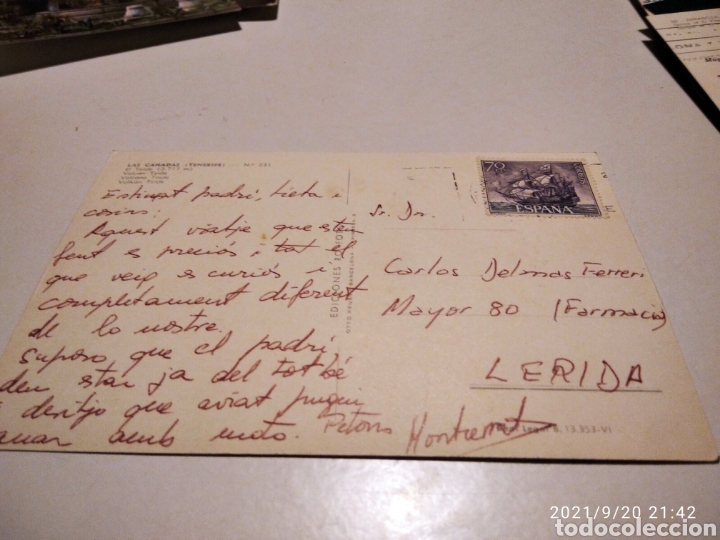 LAS CAÑADAS (TENERIFE) - N.º 221
El Teide
Estimat padrí, tieta i
cosins:
Aquest viatje que estem
fent es preciós i tot el
que veig es curiós i
completament diferent
de lo nostre.
Suposo que el padrí
deu star ja del tot bé
i desitjo que aviat pugui
anar amb moto. Petons
Montserrat
EDICIONES
BARCELONA
70
ESPAÑA
Sr. Dn.
Carlos Delmas Ferreri
Mayor 80 (Farmacia)
LERIDA
B. 13.353-VI
2021/9/20 21:42
todocoleccion